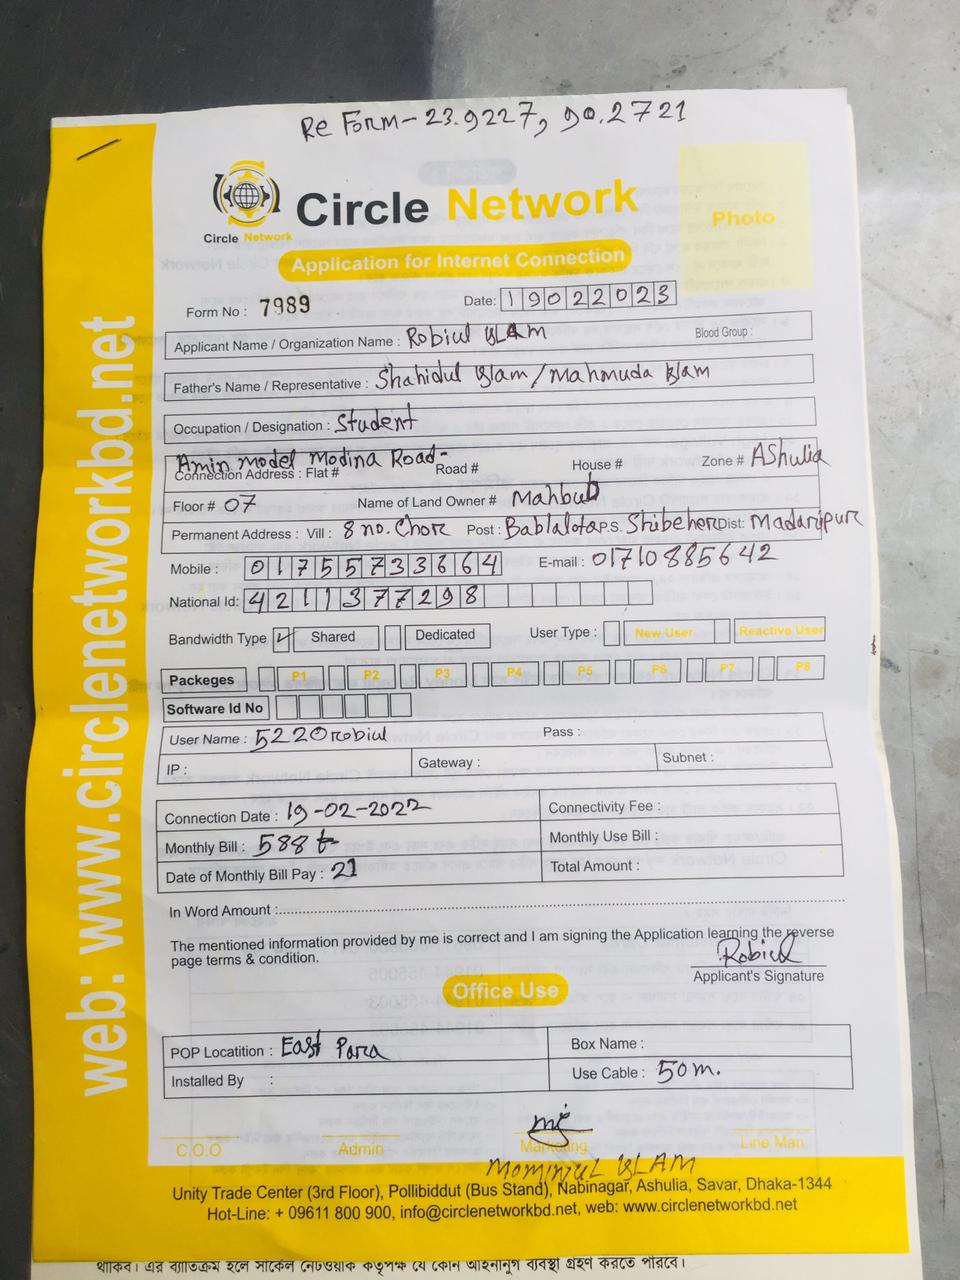 Re Form - 23.9227, 90.2721
Circle Network
Circle Network
Photo
Application for Internet Connection
Form No : 7989
Date: 19022023
Applicant Name / Organization Name : Robiul ISLAM
Blood Group :
Father's Name / Representative : Shahidul Islam / Mahmuda Islam
Occupation / Designation : Student
Amin Model Modina Road -
Connection Address : Flat # Road # House # Zone # AShulia
Floor # 07 Name of Land Owner # Mahbub
Permanent Address : Vill : 8 no. Chor Post : Bablalota P.S. Shibcher Dist: Madaripur
Mobile : 01755733664 E-mail : 01710885642
National Id: 4211377298
Bandwidth Type ✓ Shared Dedicated User Type : New User Reactive User
Packeges P1 P2 P3 P4 P5 P6 P7 P8
Software Id No
User Name : 5220robiul Pass :
IP : Gateway : Subnet :
Connection Date : 19-02-2022 Connectivity Fee :
Monthly Bill : 588 t Monthly Use Bill :
Date of Monthly Bill Pay : 21 Total Amount :
In Word Amount :
The mentioned information provided by me is correct and I am signing the Application learning the reverse
page terms & condition.
Robiul
Applicant's Signature
Office Use
POP Locatition : East Para Box Name :
Installed By : Use Cable : 50 m.
C.O.O Admin Marketing Line Man
Mominjul ISLAM
Unity Trade Center (3rd Floor), Pollibiddut (Bus Stand), Nabinagar, Ashulia, Savar, Dhaka-1344
Hot-Line: + 09611 800 900, info@circlenetworkbd.net, web: www.circlenetworkbd.net
web: www.circlenetworkbd.net
থাকিব। এর ব্যতিক্রম হলে সার্কেল নেটওয়ার্ক কতৃপক্ষ যে কোন আইনানুগ ব্যবস্থা গ্রহণ করতে পারবে।